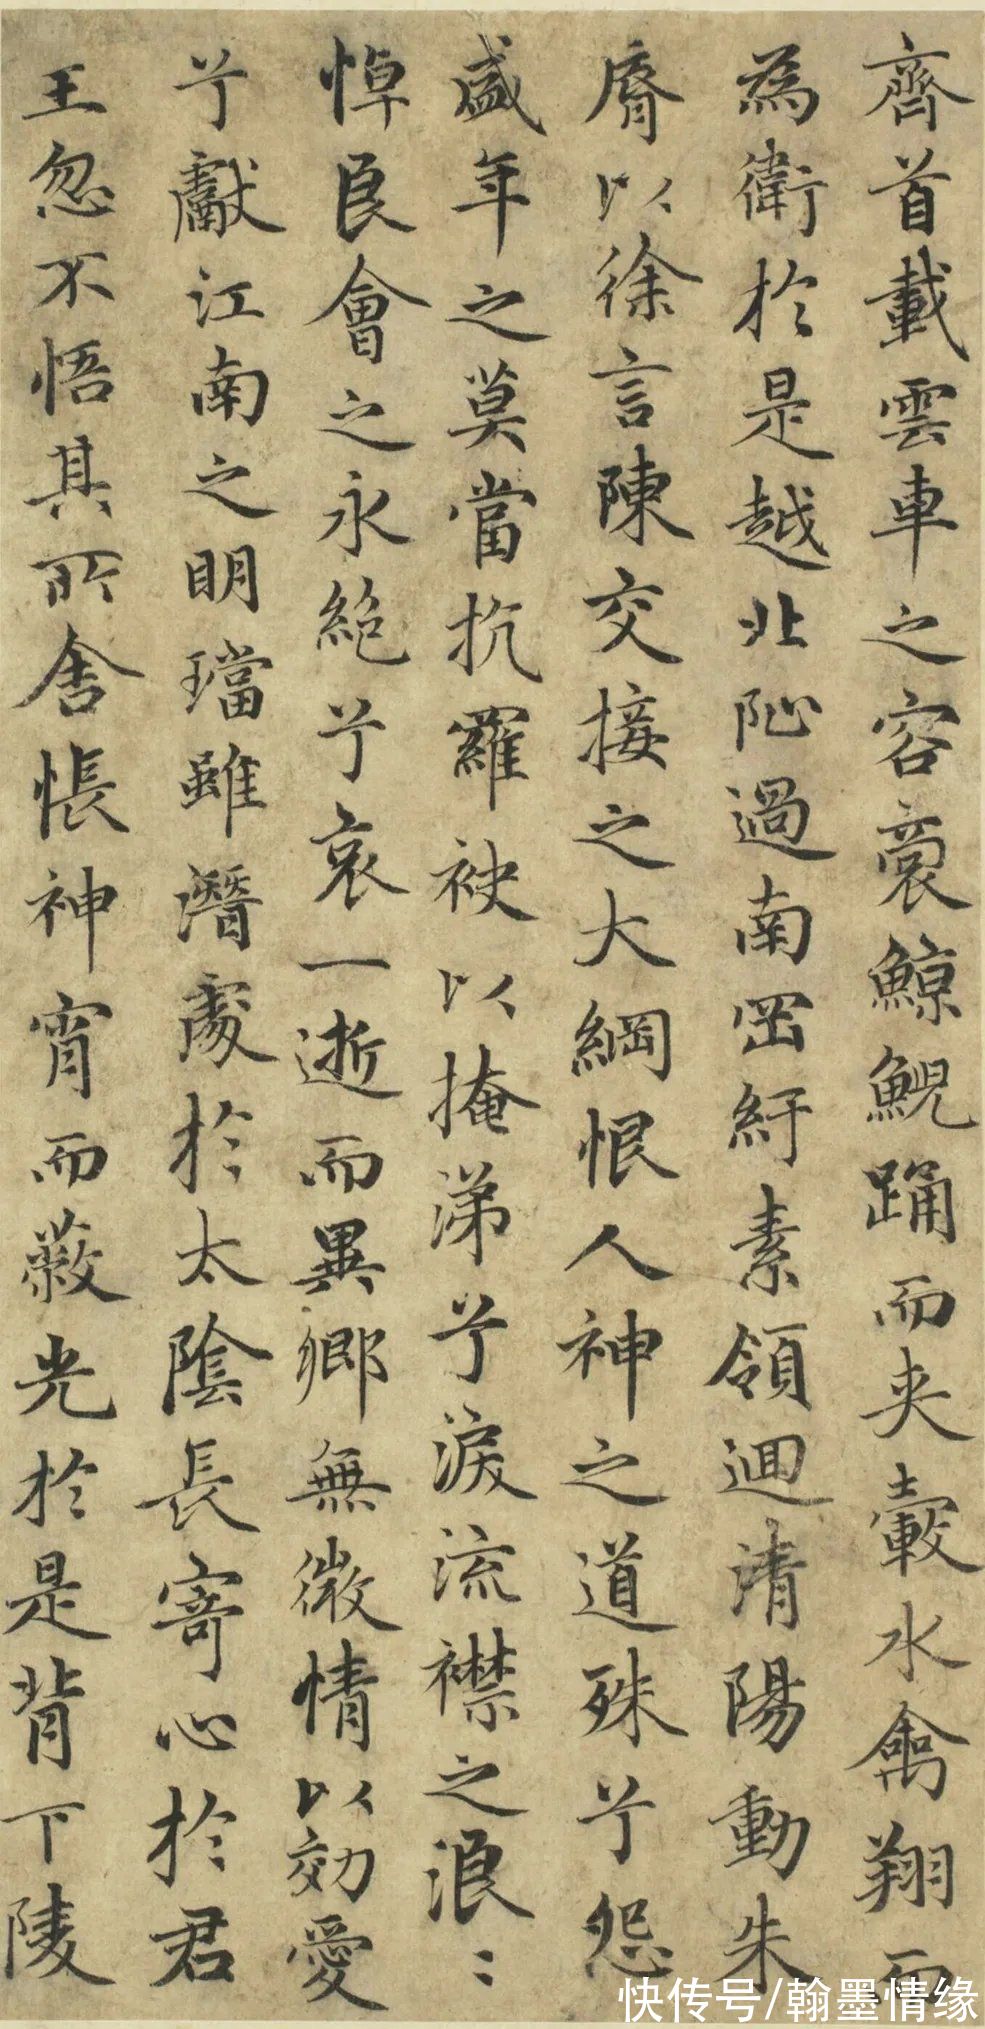 齊首載雲車之容裔鯨鯢踊而夾轂水禽翔而
為衛於是越北沚過南岡紆素領迴清陽動朱
脣以徐言陳交接之大綱恨人神之道殊兮怨
盛年之莫當抗羅袂以掩涕兮淚流襟之浪〻
悼良會之永絕兮哀一逝而異鄉無微情以効愛
兮獻江南之明璫雖潛處於太陰長寄心於君
王忽不悟其所舍悵神宵而蔽光於是背下陵
快传号/翰墨情缘